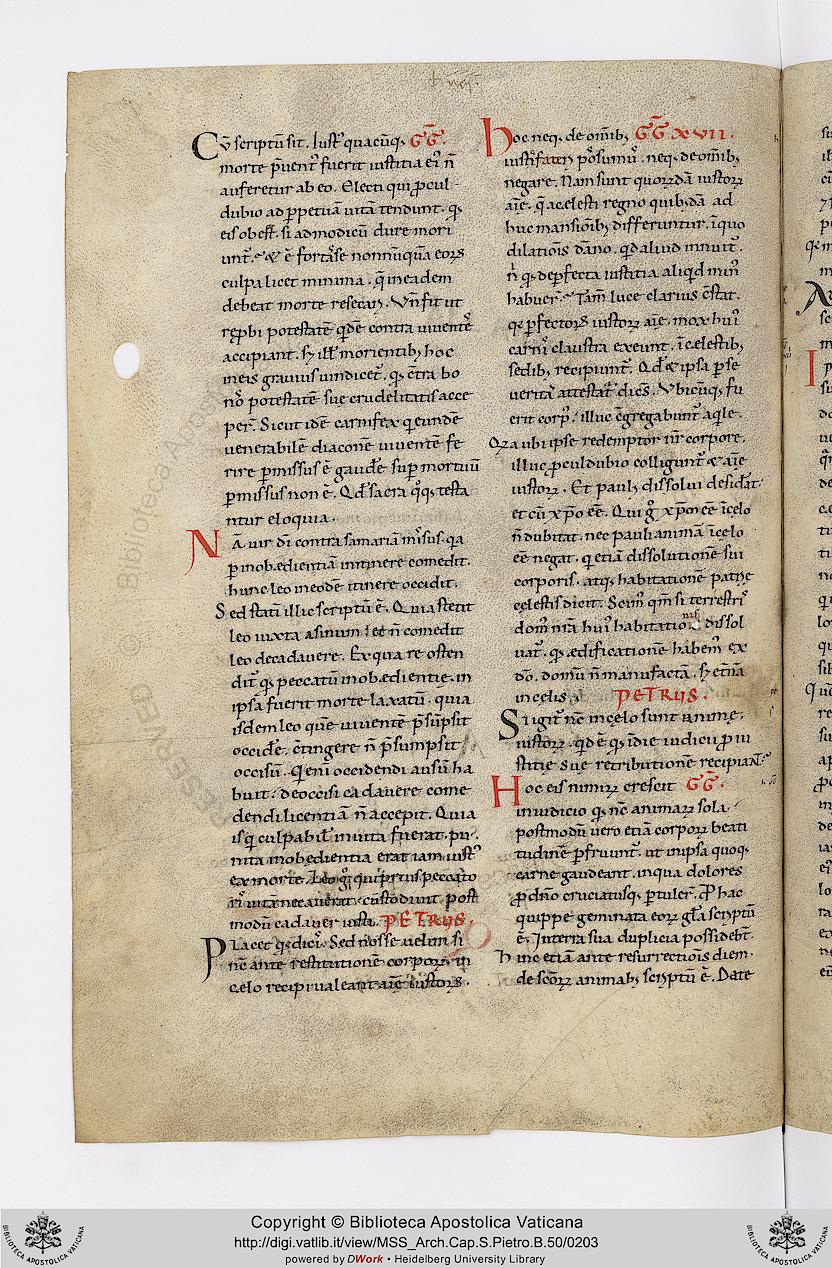 Cū scriptū sit. Iust᷒ quacūq; GḠ.
morte p̄uent᷒ fuerit iustitia ei᷒ n̄
auferetur ab eo. Electi qui ꝓcul
dubio ad ꝑpetuā uitā tendunt. qͥ
eis obest. si ad modicū dure mori
unt᷒. & ē fortasse nonnūquā eorꝝ
culpa licet minima. q̄ in eadem
debeat morte resecari. Vn̄ fit ut
reꝓbi potestatē qͥdē contra uiuentē
accipiant. sꝫ ill᷒ morientib; hoc
in eis grauius uindicet᷒. qꝫ c̄tra bo
nos potestatē sue crudelitatis acce
per̄. Sicut idē carnifex qͥ eundē
uenerabilē diaconē uiuentē fe
rire ꝑmissus ē gaudere sup mortuū
ꝑmissus non ē. Qd̄ sacra qͦq; testa
ntur eloquia.
Nā uir dī contra samariā missus. qa
ꝑ inobedientiā in itinere comedit.
hunc leo in eodē itinere occidit.
Sed statī illic scriptū ē. Quia stetit
leo iuxta asinum: et n̄ comedit
leo de cadauere. Ex qua re osten
dit᷒ qꝫ peccatū inobedientie. in
ipsa fuerit morte laxatū. quia
isdem leo quē uiuentē p̄sūpsit
occidē. c̄tingere n̄ p̄sumpsit
occisū. Qͥ eni᷒ occidendi ausū ha
buit: de occisi cadauere come
dendi licentiā n̄ accepit. Quia
is qͥ culpabil᷒ in uita fuerat. pu
nita inobedientia erat iam iust᷒
ex morte. Leo gͦ qui prius peccato
ris uitā necauerat. custodiuit post
modū cadauer iusti. PETRVS.
Placet qd̄ dicis. Sed nosse uelim si
nc̄ ante restitutionē corporꝝ. in
celo recipi ualeant aīe iustorꝝ.
Hoc neq; de omīb; GḠ XVII.
iusti fateri possumus. neq; de omīb;
negare. Nam sunt quorꝝdā iustorꝝ
aīe. q̄ a celesti regno quibꝫdā ad
huc mansionib; differuntur. ī quo
dilationis dāno. qd̄ aliud innuit᷒.
n̄ qꝫ de perfecta iustitia aliqd̄ min᷒
habuer̄. Tām luce clarius c̄stat.
qꝫ ꝑfectorꝝ iustorꝝ aīe. mox hui᷒
carnis claustra exeunt. ī celestib;
sedib; recipiunt᷒. Qd̄ & ipsa ꝑ se
ueritas attestat᷒ dicēs. Vbicūq; fu
erit corp᷒: illuc c̄gregabunt᷒ aqͥle.
Qꝛa ubi ipse redemptor nr̄ corpore.
illuc ꝓculdubio colligunt᷒ & aīe
iustorꝝ. Et paul᷒ dissolui desidat᷒
et cū xp̄o eē. Qui gͦ xp̄om eē ī celo
n̄ dubitat. nec pauli animā ī celo
eē negat. qͥ etiā dissolutionē sui
corporis. atq; habitationē patrie
celestis dicit. Scimus qm̄ si terrestris
domus nr̄a hui᷒ habitationis dissol
uat᷒. qꝫ ædificationē habem᷒ ex
dō. domū n̄ manufactā. sꝫ etn̄ā
in celis. PETRVS.
Si igit᷒ nc̄ in celo sunt anime.
iustorꝝ. qd̄ ē qꝫ ī die iudicii ꝓ iu
stitie sue retributione recipiant.
Hoc eis nimirꝝ crescit GḠ.
in iudicio qꝫ nc̄ animarꝝ sola.
postmodū uero etiā corporꝝ beati
tudine ꝑfruunt᷒. ut in ipsa quoq;
carne gaudeant. in qua dolores
ꝓ dn̄o cruciatusq; ꝑtuler̄. P hac
quippe geminata eorꝝ gl̄a scriptū
ē. In terra sua duplicia possidebt̄.
Hinc etiā ante resurrectionis diem.
de scōrꝝ animab; scriptū ē. Date
Copyright © Biblioteca Apostolica Vaticana
http://digi.vatlib.it/view/MSS_Arch.Cap.S.Pietro.B.50/0203
powered by DWork • Heidelberg University Library